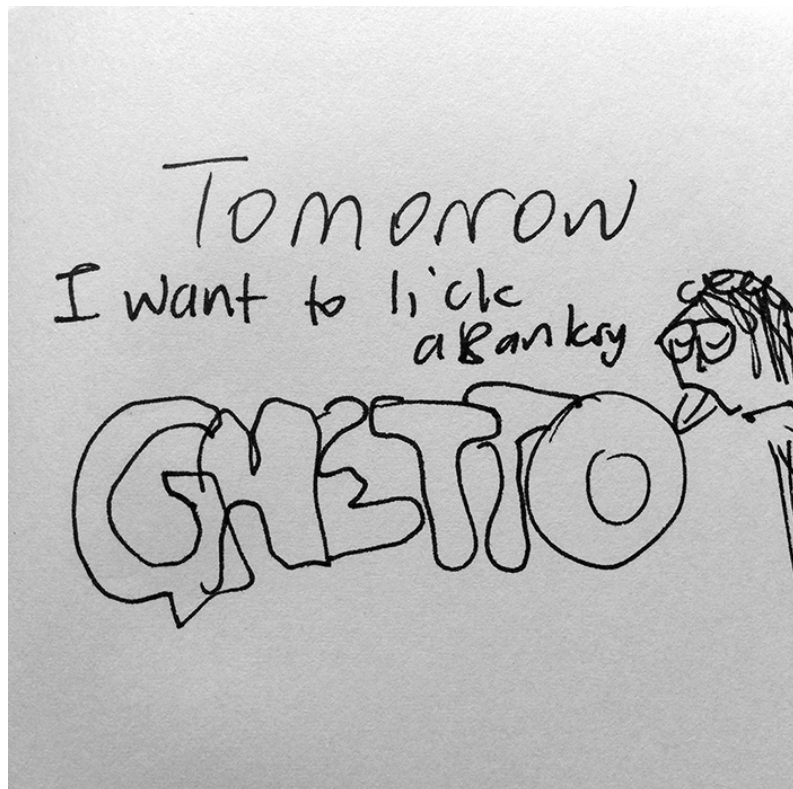 Tomorrow
I want to lick
a Banksy
GHETTO